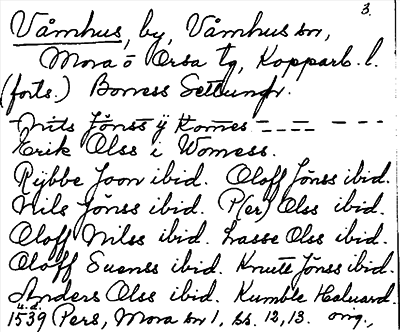 3.
Våmhus, by, Våmhus sn,
Mora o Orsa tg, Kopparb. l.
(forts.) Boness Settungr.
— Nils Jönss ÿ Komes — — — — — —
Erik Olss i Womess.
Rÿbbe Joon ibid. Oloff Jönss ibid.
Nils Jönss ibid. P(er) Olss ibid.
Oloff Nilss ibid. Lasse Olss ibid.
Oloff Suenss ibid. Knutt Jönss ibid.
Anders Olss ibid. Kumble Haluard.
1539 u.å. Pers, Mora sn 1, ss. 12, 13. orig.,